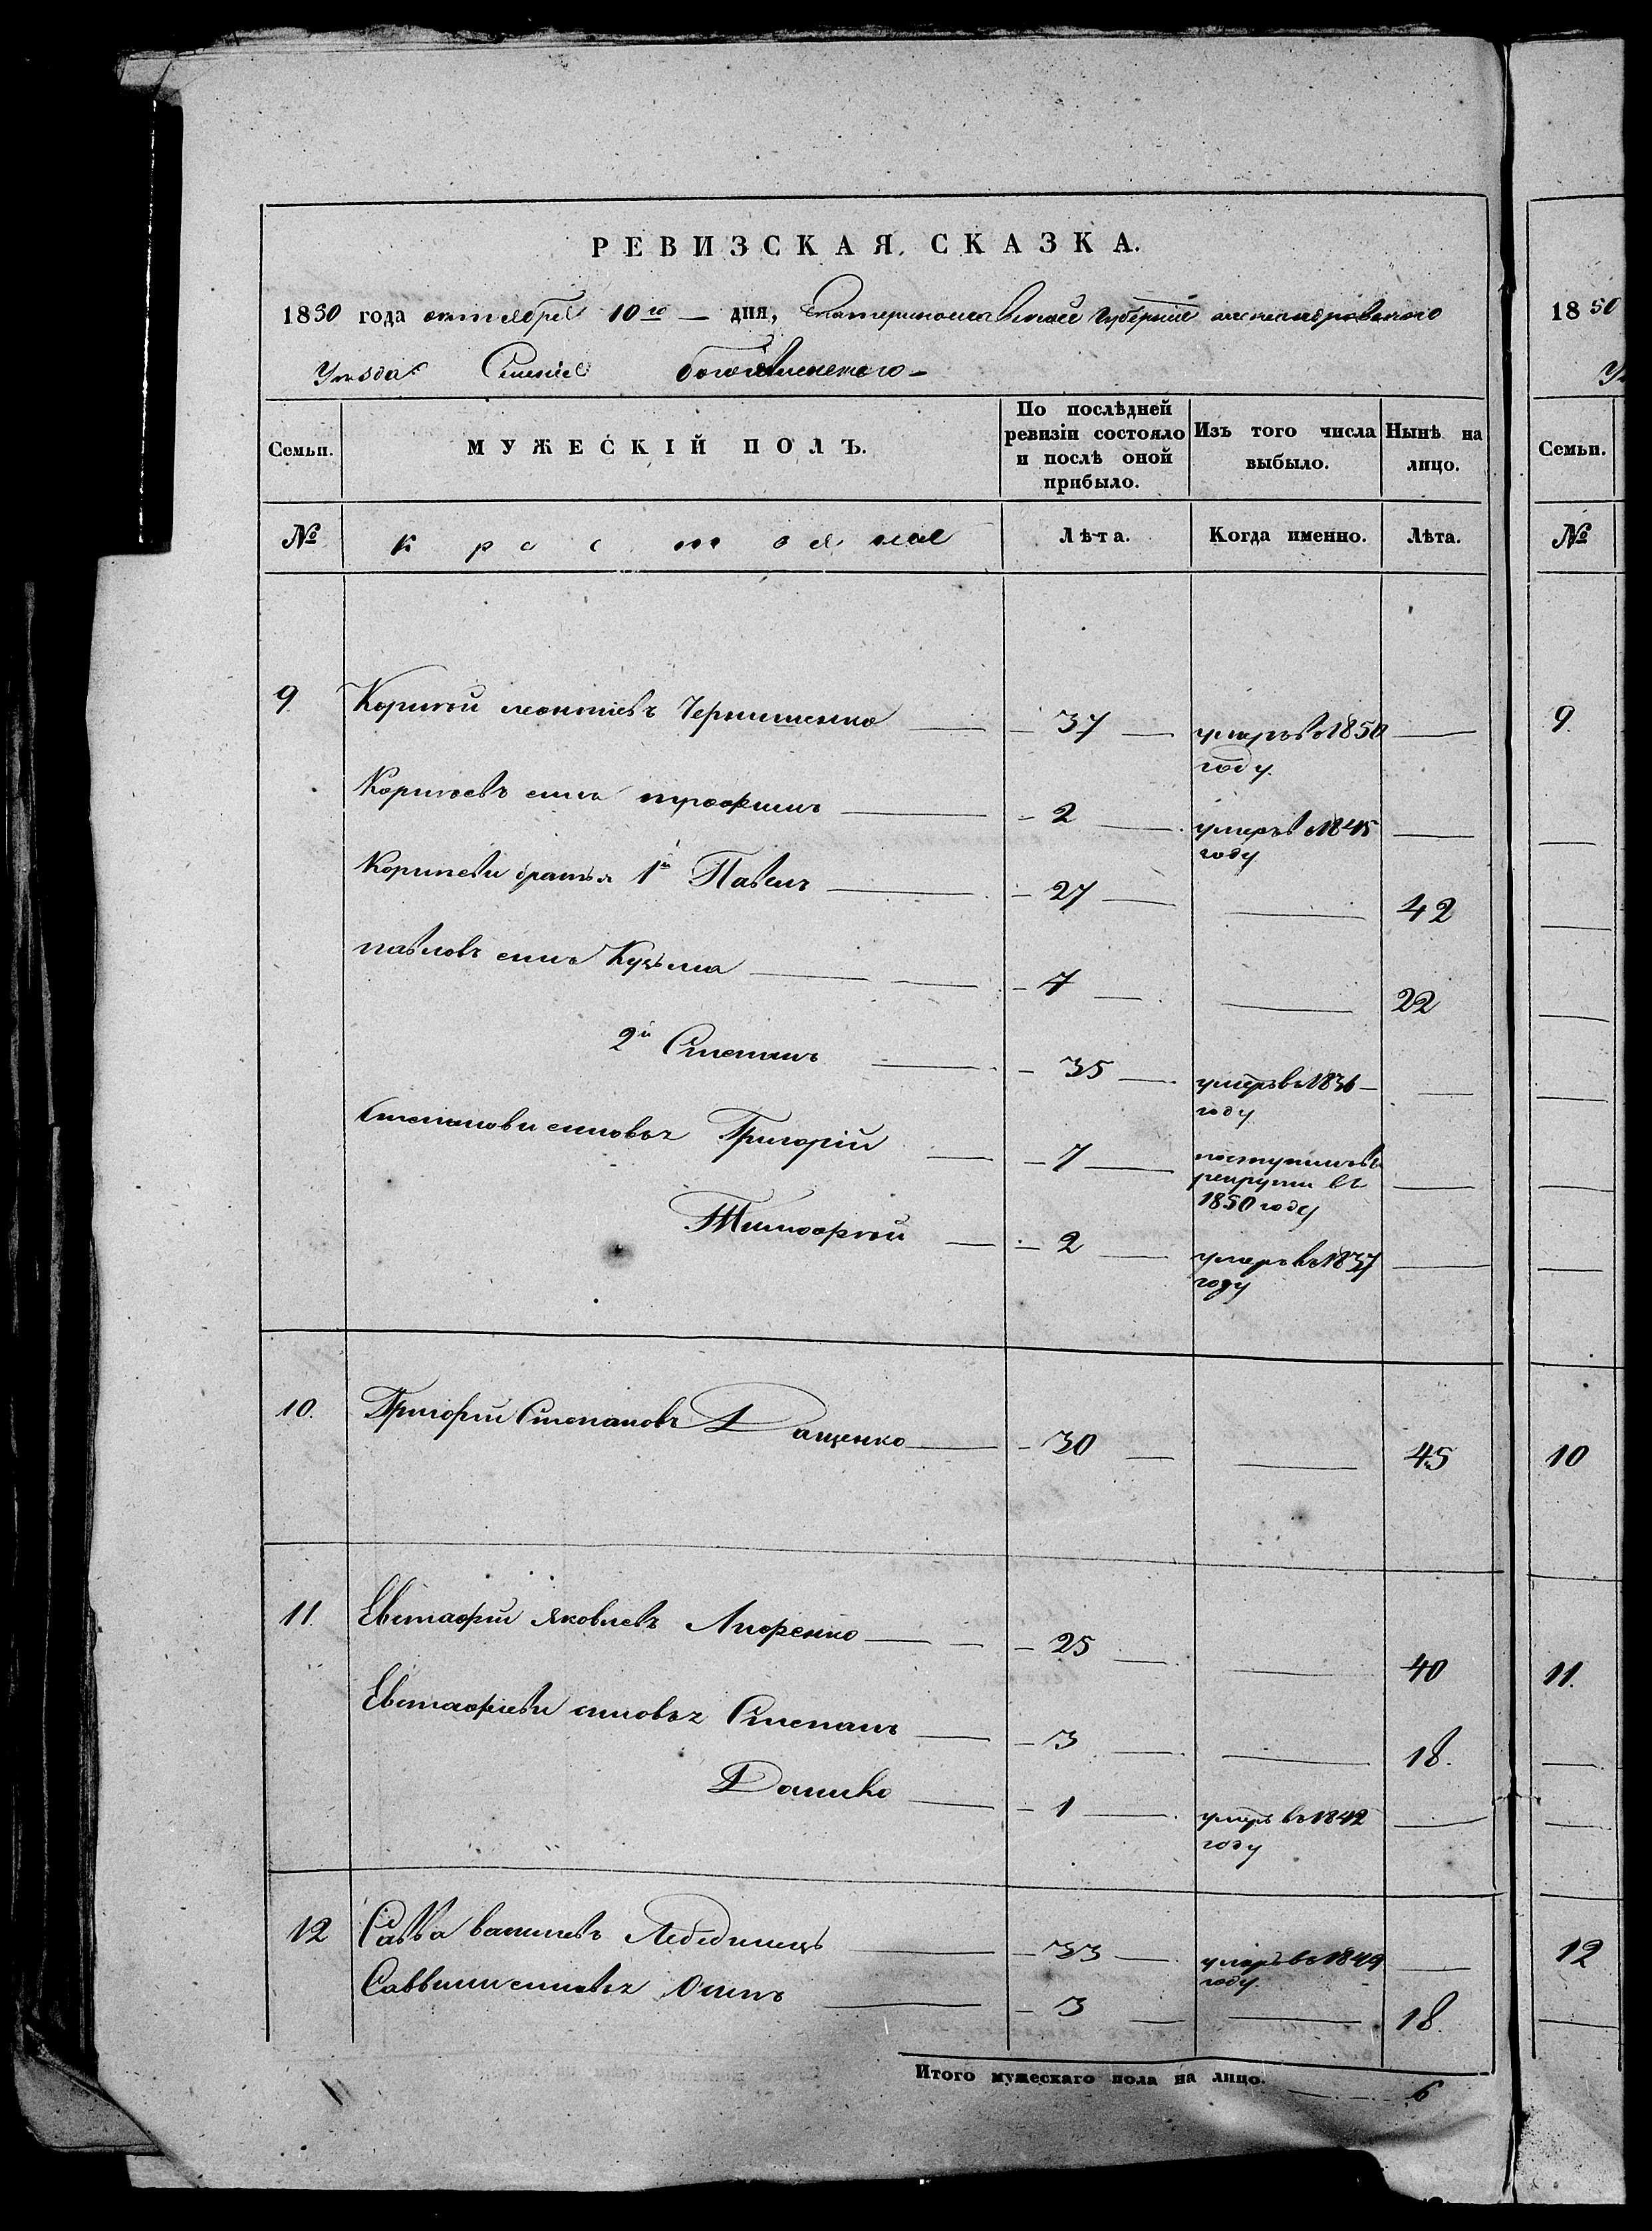 РЕВИЗСКАЯ СКАЗКА.
1850 года октября 10го — дня, Екатеринославской Губернии александровского
Уезда Сиенiе богоявленского —
Семьи. МУЖЕСКІЙ ПОЛЪ. По послѣдней ревизіи состояло и послѣ оной прибыло. Изъ того числа выбыло. Нынѣ на лицо.
№ крестьяне Лѣта. Когда именно. Лѣта.
9 Корней леонтіевъ Чернышенко — 37 — умеръ въ 1850 году —
Корнеевъ сынъ трофимъ — 2 — умеръ въ 1845 году —
Корнеевы братья 1й Павелъ — 27 — — 42
павловъ сынъ Кузьма — 7 — — 22
2й Степанъ — 35 — умеръ въ 1836 году —
Степановы сыновья Григорій — 7 — поступилъ въ рекруты въ 1850 году —
Тимофей — 2 — умеръ въ 1837 году —
10. Григорій Степановъ Дащенко — 30 — — 45
11. Евстафій Яковлевъ — 25 — — 40
Евстафіевы сыновья Степанъ — 3 — — 18.
Данило — 1 — умеръ въ 1842 году —
12 Савва васильевъ Лебединецъ — 33 — умеръ въ 1849 году —
Саввины сыновья Осипъ — 3 — — 18.
Итого мужескаго пола на лицо. — 6
1850
У
Семьи.
№
9.
10
11.
12